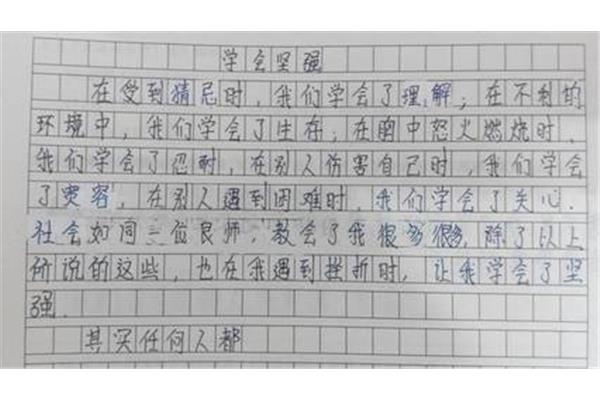 学会坚强
在受到猜忌时，我们学会了理解；在不利的
环境中，我们学会了生存；在胸中怒火燃烧时，
我们学会了忍耐，在别人伤害自己时，我们学会
了宽容，在别人遇到困难时，我们学会了关心。
社会如同一位良师，教会了我很多很多，除了以上
所说的这些，也在我遇到挫折时，让我学会了坚
强。
其实任何人都